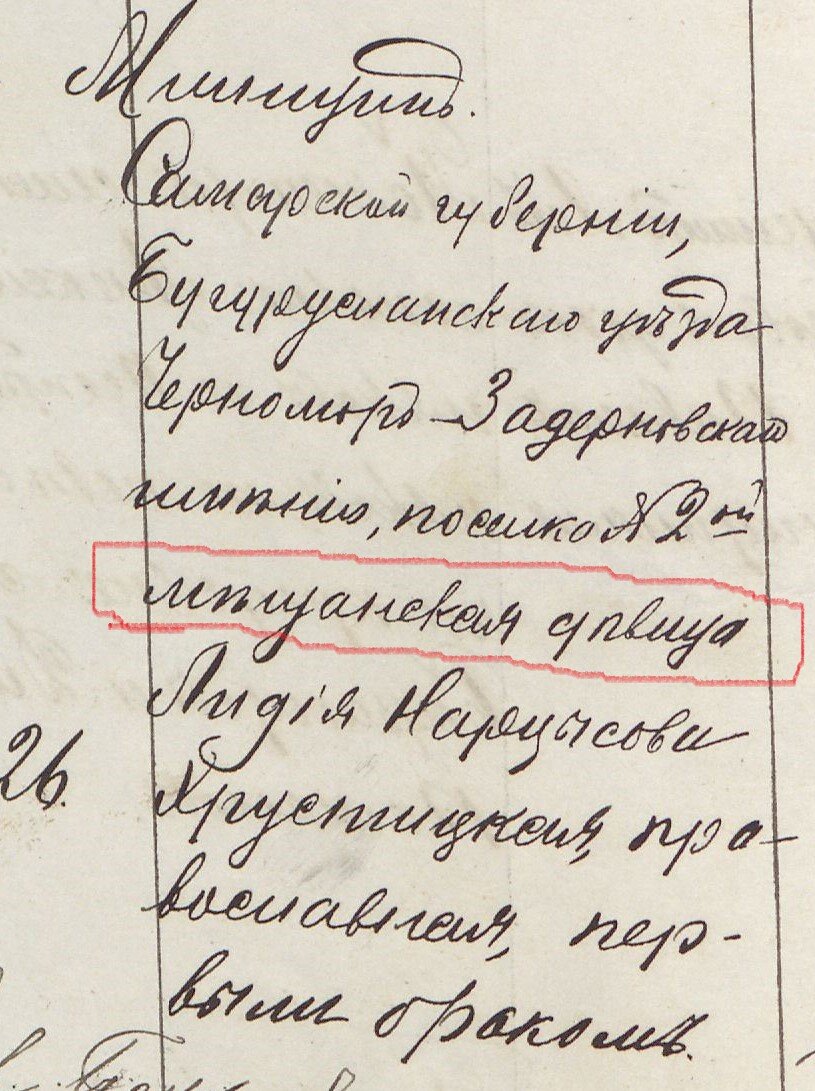 Самарской губерніи,
Бугурусланскаго уѣзда
Черноморо-Задерновскаго
имѣнія, поселка № 2ой
мѣщанская дѣвица
Лидія Нарцысова
26. Хрустицкая, пра-
вославная, пер-
вымъ бракомъ.